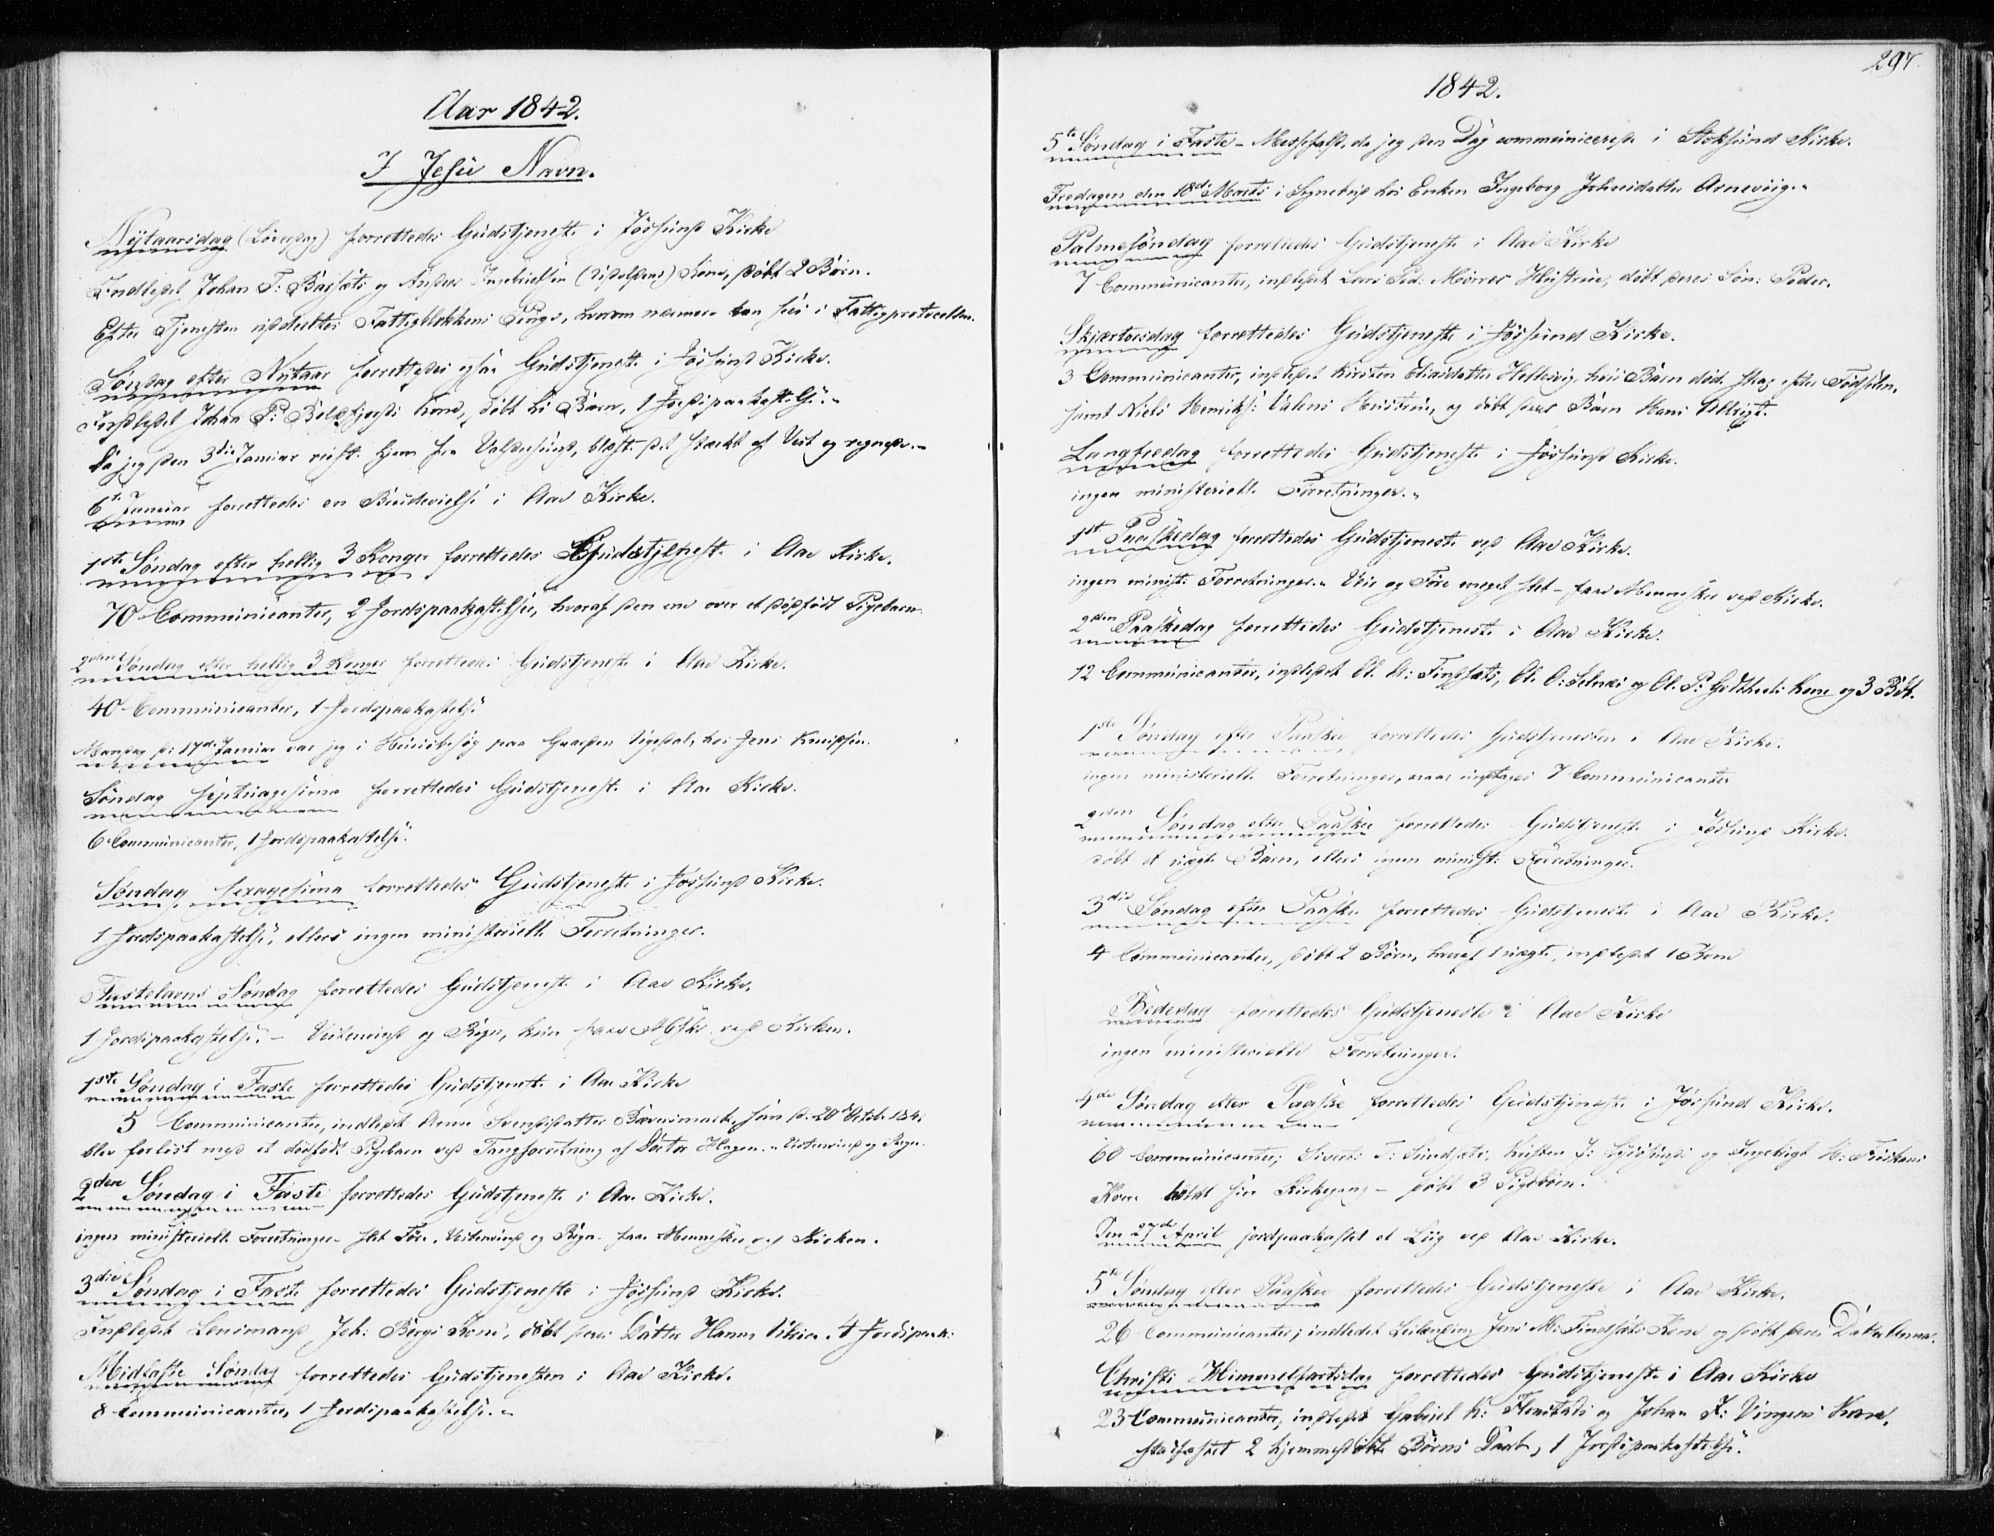 Aar 1842.
I Jesu Navn.
Nytaarsdag (Løverdag) forrettedes Gudstjeneste i Jøssund Kirke
Indledet Johan T: Barsæts og Anders Ingebrigtsen Kone, døbt 2 Børn.
Efter Tjenesten uddeeltes Fattigblokkens Penge, hvorom nærmere kan sees i Fattigprotocollen.
Søndag efter Nytaar forrettedes ogsaa Gudstjeneste i Jøssund Kirke.
Indledet Johan P: Kone, døbt Børn, 1 Jordspaakastelse.
Da jeg den 3die Januar reiste hjem fra Valdersund, blæste det stærkt af Vest og regnede.
6te Januar forrettedes en Brudevielse i Aae Kirke.
1ste Søndag efter hellig 3 Konger forrettedes Gudstjeneste i Aae Kirke.
70 Communicanter, 2 Jordspaakastelser, hvoraf den ene over et dødfødt Pigebarn
2den Søndag efter hellig 3 Konger forrettedes Gudstjeneste i Aae Kirke.
40 Communicanter, 1 Jordspaakastelse
Mandag d: 17de Januar var jeg i Huusbesøg paa Gaarden hos Jens Knudsen.
Søndag septuagesima forrettedes Gudstjeneste i Aae Kirke.
6 Communicanter, 1 Jordspaakastelse.
Søndag sexagesima forrettedes Gudstjeneste i Jøssund Kirke.
1 Jordspaakastelse, ellers ingen ministerielle Forretninger.
Fastelavns Søndag forrettedes Gudstjeneste i Aae Kirke.
1 Jordspaakastelse. – Vestenvind og Regn, kun faae ved Kirken.
1ste Søndag i Faste forrettedes Gudstjeneste i Aae Kirke
5 Communicanter, indledet Anne hun d. 20de Octob: 1841
blev forløst med et dødfødt Pigebarn ved Tangforretning af Doctor Hagen. Vestenvind og Regn.
2den Søndag i Faste forrettedes Gudstjeneste i Aae Kirke.
ingen ministerielle Forretninger slet Føre, Vestenvind og Regn faae Mennesker ved Kirken.
3die Søndag i Faste forrettedes Gudstjeneste i Jøssund Kirke.
Indledet Lensmand Joh: Bergs Kone, døbt deres Datter Hanna 4 Jordspaak:
Midfaste Søndag forrettedes Gudstjenesten i Aae Kirke.
8 Communicanter, 1 Jordspaakastelse.
297.
1842.
5te Søndag i Faste – Messefald, da jeg den Dag communicerede i Stoksund Kirke.
Fredagen den 18de Marts i Sognebud hos Enken Ingeborg Johnsdatter Arnevig.
Palmesøndag forrettedes Gudstjeneste i Aae Kirke
7 Communicanter, indledet Lars Ped: Hustrue, døbt deres Søn: Peder.
Skjærtorsdag forrettedes Gudstjeneste i Jøssund Kirke.
3 Communicanter, indledet Kirsten Hellesvig, hvis Barn døde strax efter Fødselen,
samt Niels Henriks: Hustrue, og døbt deres Barn Hans
Langfredag forrettedes Gudstjeneste i Jøssund Kirke.
ingen ministerielle Forretninger.
1ste Paaskedag forrettedes Gudstjeneste ved Aae Kirke.
ingen minist: Forretninger. Veir og Føre meget slet – faae Mennesker ved Kirke.
2den Paaskedag forrettedes Gudstjeneste i Aae Kirke.
12 Communicanter, indledet Ol. A: Ol. O: Selnes og Ol. P: Kone og 3 Børn.
1ste Søndag efter Paaske forrettedes Gudstjenesten i Aae Kirke.
ingen ministerielle Forretninger, 7 Communicanter
2den Søndag efter Paaske forrettedes Gudstjeneste i Jøssund Kirke.
døbt et uægte Barn, ellers ingen minist: Forretninger.
3die Søndag efter Paaske forrettedes Gudstjeneste i Aae Kirke.
4 Communicanter, døbt 2 Børn, hvoraf 1 uægte, indledet 1 Kone
Bededag forrettedes Gudstjeneste i Aae Kirke
ingen ministerielle Forretninger.
4de Søndag efter Paaske forrettedes Gudstjeneste i Jøssund Kirke.
60 Communicanter; Sivert T: og Ingebrigt
Kone holdt sin Kirkegang – døbt 3 Pigebørn.
Den 27de April jordpaakastet et Liig ved Aae Kirke.
5te Søndag efter Paaske forrettedes Gudstjeneste i Aae Kirke.
26 Communicanter; indledet Jens M: Kone og døbt deres Datter Anna.
Christi Himmelfartsdag forrettedes Gudstjeneste i Aae Kirke
23 Communicanter, indledet Gabriel K: og Johan J: Vingens Kone,
stadfæstet 2 hjemmedøbte Børns Daab, 1 Jordspaakastelse.